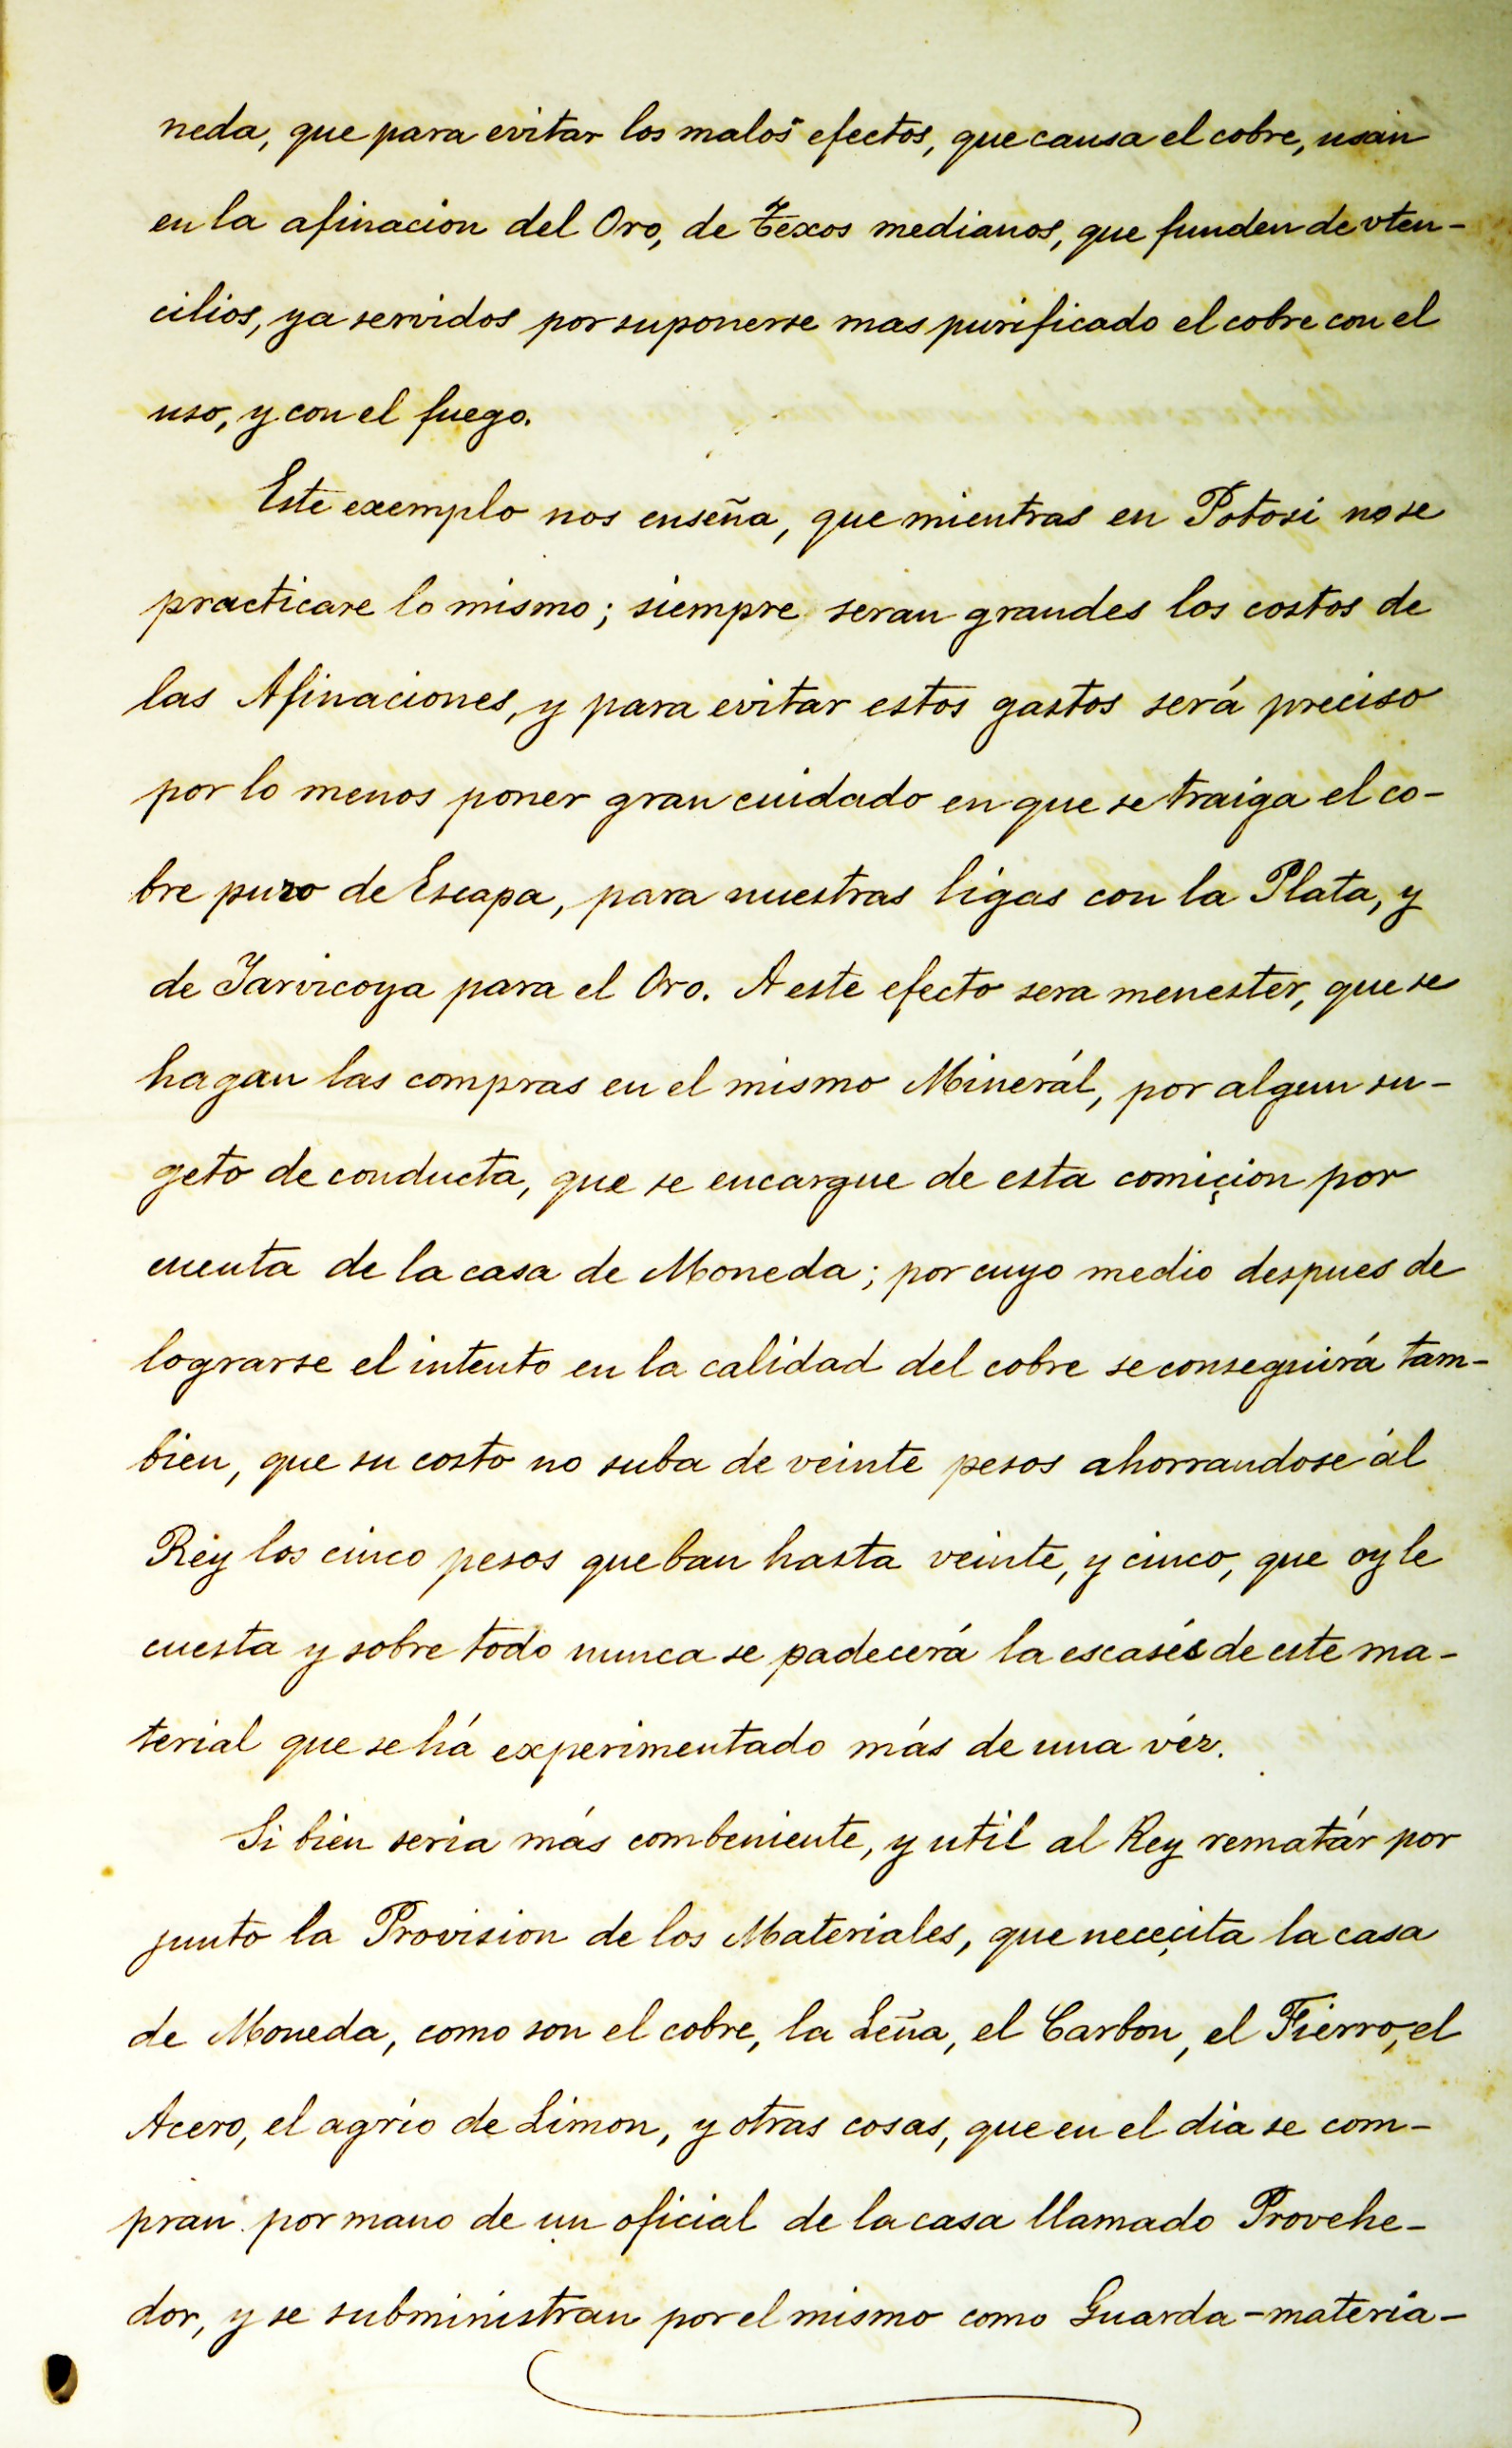 neda, que para evitar los malos efectos, que causa el cobre, usan
en la afinacion del Oro, de Texos medianos, que funden de vten-
cilios, ya servidos por suponerse mas purificado el cobre con el
uso, y con el fuego.
Este exemplo nos enseña, que mientras en Potosi no se
practicare lo mismo; siempre seran grandes los costos de
las Afinaciones, y para evitar estos gastos será preciso
por lo menos poner gran cuidado en que se traiga el co-
bre puro de Escapa, para nuestras ligas con la Plata, y
de Yarvicoya para el Oro. A este efecto sera menester, que se
hagan las compras en el mismo Minerál, por algun su-
geto de conducta, que se encargue de esta comiçion por
cuenta de la casa de Moneda; por cuyo medio despues de
lograrse el intento en la calidad del cobre se conseguirá tam-
bien, que su costo no suba de veinte pesos ahorrandose al
Rey los cinco pesos que ban hasta veinte, y cinco, que oy le
cuesta y sobre todo nunca se padecerá la escasés de este ma-
terial que se há experimentado más de una véz.
Si bien seria más combeniente, y util al Rey rematár por
junto la Provision de los Materiales, que neceçita la casa
de Moneda, como son el cobre, la Leña, el Carbon, el Fierro, el
Acero, el agrio de Limon, y otras cosas, que en el dia se com-
pran por mano de un oficial de la casa llamado Provehe-
dor, y se subministran por el mismo como Guarda-materia-